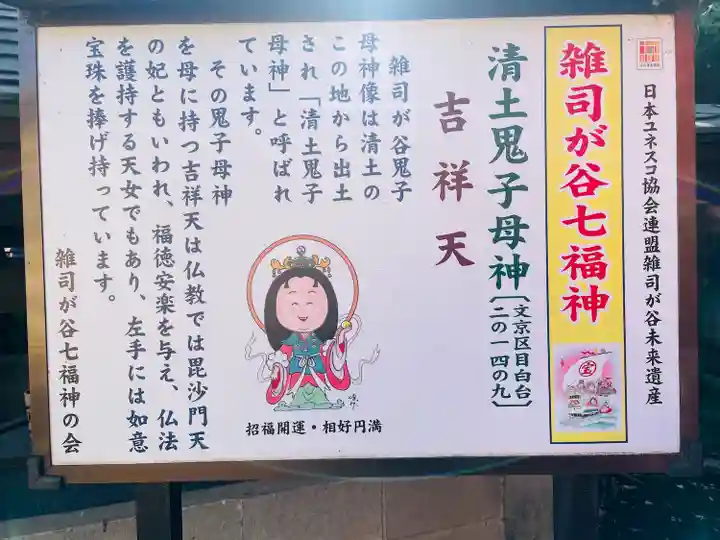 日本ユネスコ協会連盟雑司が谷未来遺産
雑司が谷七福神
宝
清土鬼子母神〔文京区目白台
二の一四の九〕
吉祥天
雑司が谷鬼子
母神像は清土の
この地から出土
され「清土鬼子
母神」と呼ばれ
ています。
その鬼子母神
を母に持つ吉祥天は仏教では毘沙門天
の妃ともいわれ、福徳安楽を与え、仏法
を護持する天女でもあり、左手には如意
宝珠を捧げ持っています。
雑司が谷七福神の会
招福開運・相好円満